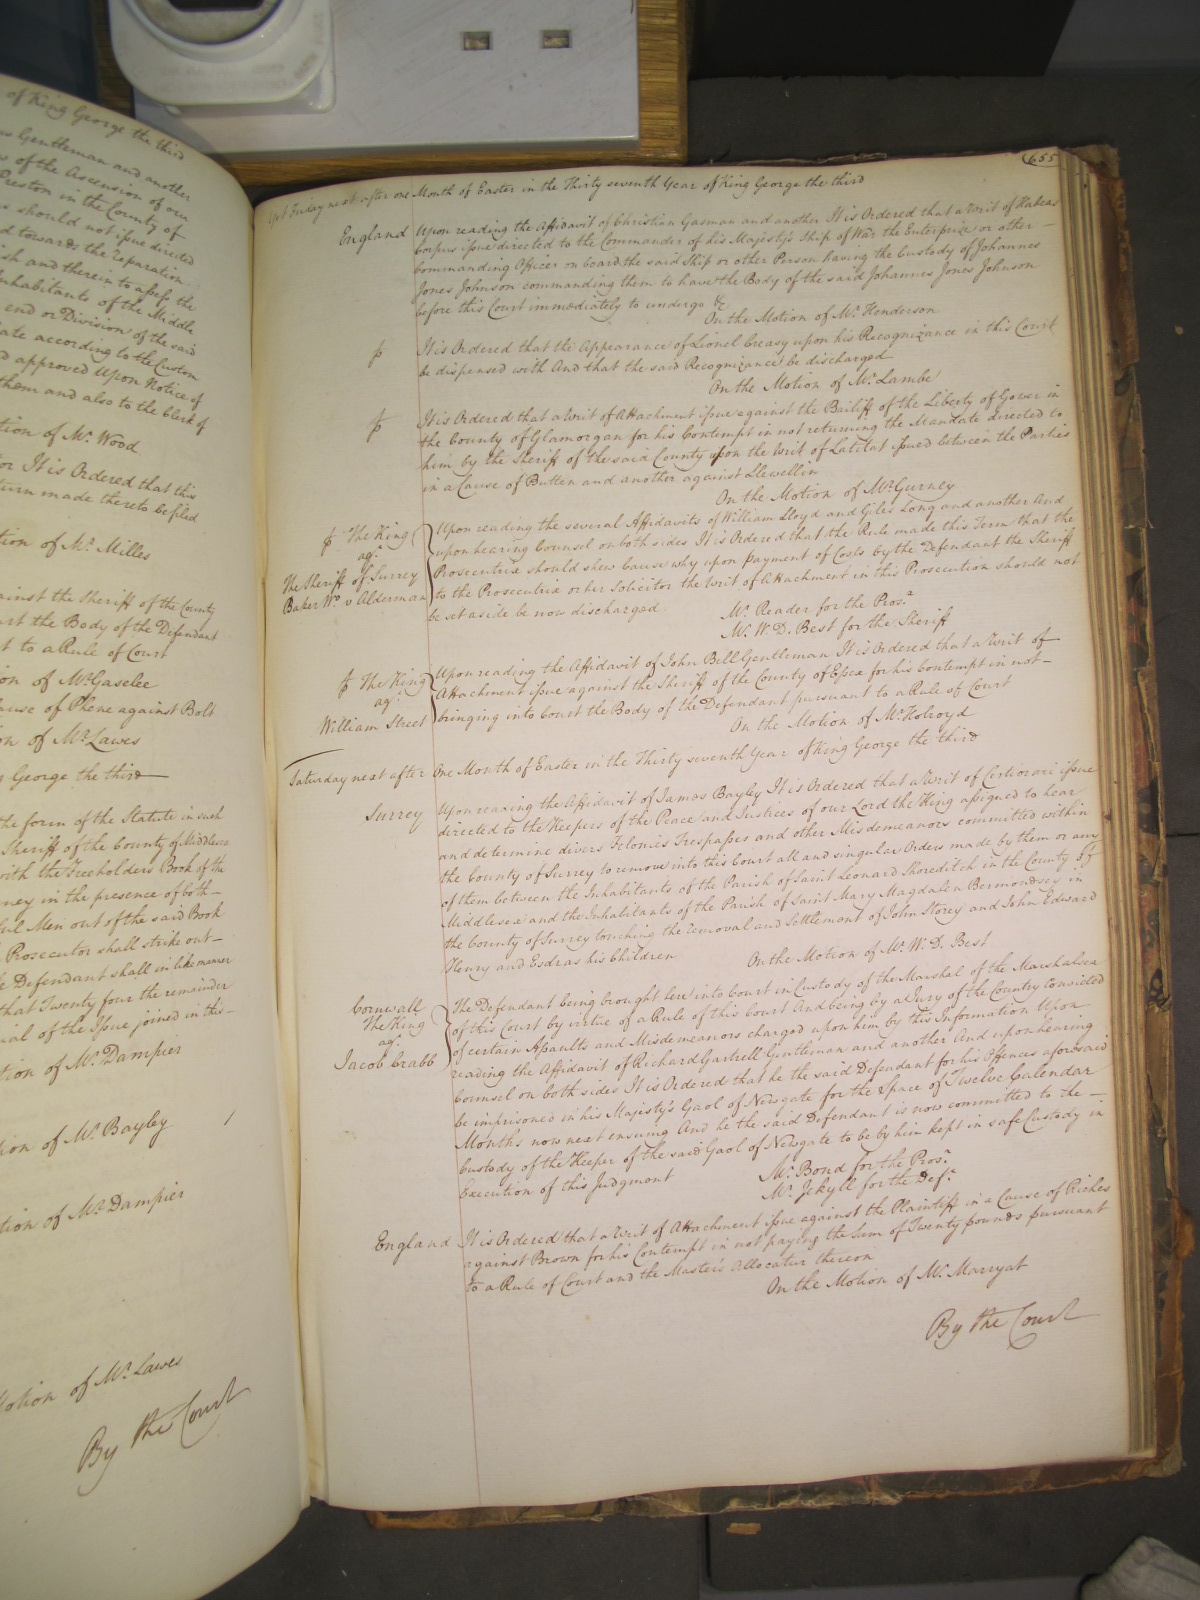 of King George the third
Gentleman and another
of the Ascension of our
Preston in the County of
should not issue directed
towards the reparation
and therein to assess the
Inhabitants of the Middle
end or Division of the said
according to the Custom
approved Upon Notice of
them and also to the Clerk of
of Mr. Wood
It is Ordered that this
made thereto be filed
of Mr. Milles
against the Sheriff of the County
the Body of the Defendant
to a Rule of Court
of Mr. Gaselee
Cause of Plene against Bolt
of Mr. Lawes
George the third
the form of the Statute in such
Sheriff of the County of Middlesex
with the Freeholders Book of the
in the presence of both
Men out of the said Book
Prosecutor shall strike out
Defendant shall in like manner
that Twenty four the remainder
of the Issue joined in this
of Mr. Dampier
of Mr. Bayley
of Mr. Dampier
Motion of Mr. Lawes
By the Court
655
Yet Friday next after one Month of Easter in the Thirty seventh Year of King George the third
England Upon reading the Affidavit of Christian Gasman and another It is Ordered that a Writ of Habeas
Corpus issue directed to the Commander of his Majesty's Ship of War the Enterprize or other
Commanding Officer on board the said Ship or other Person having the Custody of Johannes
Jones Johnson commanding them to have the Body of the said Johannes Jones Johnson
before this Court immediately to undergo &c
On the Motion of Mr. Henderson
It is Ordered that the Appearance of Lionel Creasy upon his Recognizance in this Court
be dispensed with And that the said Recognizance be discharged
On the Motion of Mr. Lambe
It is Ordered that a Writ of Attachment issue against the Bailiff of the Liberty of Gower in
the County of Glamorgan for his Contempt in not returning the Mandate directed to
him by the Sheriff of the said County upon the Writ of Latitat issued between the Parties
in a Cause of Button and another against Llewellin
On the Motion of Mr. Gurney
The King
agt.
The Sheriff of Surrey
Baker Wo. v Alderman
Upon reading the several Affidavits of William Lloyd and Giles Long and another And
upon hearing Counsel on both sides It is Ordered that the Rule made this Term that the
Prosecutrix should shew Cause why upon payment of Costs by the Defendant the Sheriff
to the Prosecutrix or her Solicitor the Writ of Attachment in this Prosecution should not
be set aside be now discharged
Mr. Reader for the Prosx.
Mr. W. D. Best for the Sheriff
The King
agt.
William Street
Upon reading the Affidavit of John Bell Gentleman It is Ordered that a Writ of
Attachment issue against the Sheriff of the County of Essex for his Contempt in not
bringing into Court the Body of the Defendant pursuant to a Rule of Court
On the Motion of Mr. Holroyd
Saturday next after One Month of Easter in the Thirty seventh Year of King George the third
Surrey Upon reading the Affidavit of James Bayley It is Ordered that a Writ of Certiorari issue
directed to the Keepers of the Peace and Justices of our Lord the King assigned to hear
and determine divers Felonies Trespasses and other Misdemeanors committed within
the County of Surrey to remove into this Court all and singular Orders made by them or any
of them between the Inhabitants of the Parish of Saint Leonard Shoreditch in the County of
Middlesex and the Inhabitants of the Parish of Saint Mary Magdalen Bermondsey in
the County of Surrey touching the removal and Settlement of John Storey and John Edward
Henry and Esdras his Children
On the Motion of Mr. W. D. Best
Cornwall
The King
agt.
Jacob Crabb
The Defendant being brought here into Court in Custody of the Marshal of the Marshalsea
of this Court by virtue of a Rule of this Court And being by a Jury of the Country convicted
of certain Assaults and Misdemeanors charged upon him by this Information Upon
reading the Affidavit of Richard Gartrell Gentleman and another And upon hearing
Counsel on both sides It is Ordered that he the said Defendant for his Offences aforesaid
be imprisoned in his Majesty's Gaol of Newgate for the Space of Twelve Calendar
Months now next ensuing And he the said Defendant is now committed to the
Custody of the Keeper of the said Gaol of Newgate to be by him kept in safe Custody in
Execution of this Judgment
Mr. Bond for the Prosr.
Mr. Jekyll for the Deft.
England It is Ordered that a Writ of Attachment issue against the Plaintiff in a Cause of Riches
against Brown for his Contempt in not paying the Sum of Twenty pounds pursuant
to a Rule of Court and the Master's Allocatur thereon
On the Motion of Mr. Marryat
By the Court